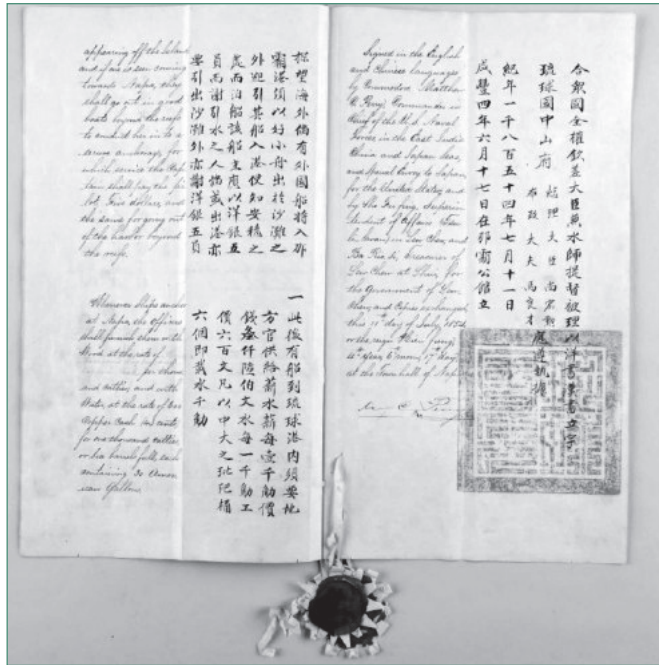 appearing off the Island
and if one is seen coming
towards Napa, they
shall go out in good
boats beyond the reefs
to conduct her in to a
secure anchorage, for
which service the Cap-
tain shall pay the pi-
lot, Five dollars, and
the same for going out
of the harbor beyond
the reefs.
探望海外倘有外國船將入那
霸港須以好小舟出於沙灘之
外迎引其船入港使知安穩之
處而泊船該船主應以洋銀五
員而謝引水之人倘或出港亦
要引出沙灘外亦謝洋銀五員
Whenever Ships anchor
at Napa, the Officers
shall furnish them with
Wood at the rate of
thou-
sand catties; and with
Water, at the rate of 600
Copper Cash
for one thousand catties
or Six barrels full, each
containing 30 Ameri-
can Gallons.
一此後有船到琉球港內須要地
方官供給薪水薪每壹千觔價
錢叁仟陸伯文水每一千觔工
價六百文凡以中大之琵琶桶
六個即載水千觔
Signed in the English
and Chinese languages
by Commodore Matthew
C. Perry, Commander in
Chief of the U.S. Naval
Forces in the East India
China and Japan Seas,
and Special Envoy to Japan,
for the United States; and
by Sho Fu fing, Superin-
tendent of Affairs (Tsu-
li-kwan) in Lew Chew, and
Ba Rio-si, Treasurer of
Lew Chew at Shui, for
the Government of Lew
Chew, and Copies exchanged
this 11th day of July 1854
or the reign Hien fung,
4th Year, 6th moon, 17th day
at the Town Hall of Napa.
合衆國全權欽差大臣兼水師提督被理以洋書漢書立字
琉球國中山府 總理大臣 尚宏勳
布政大夫 馬良才 應遵執據
紀年一千八百五十四年七月十一日
咸豐四年六月十七日在那霸公館立